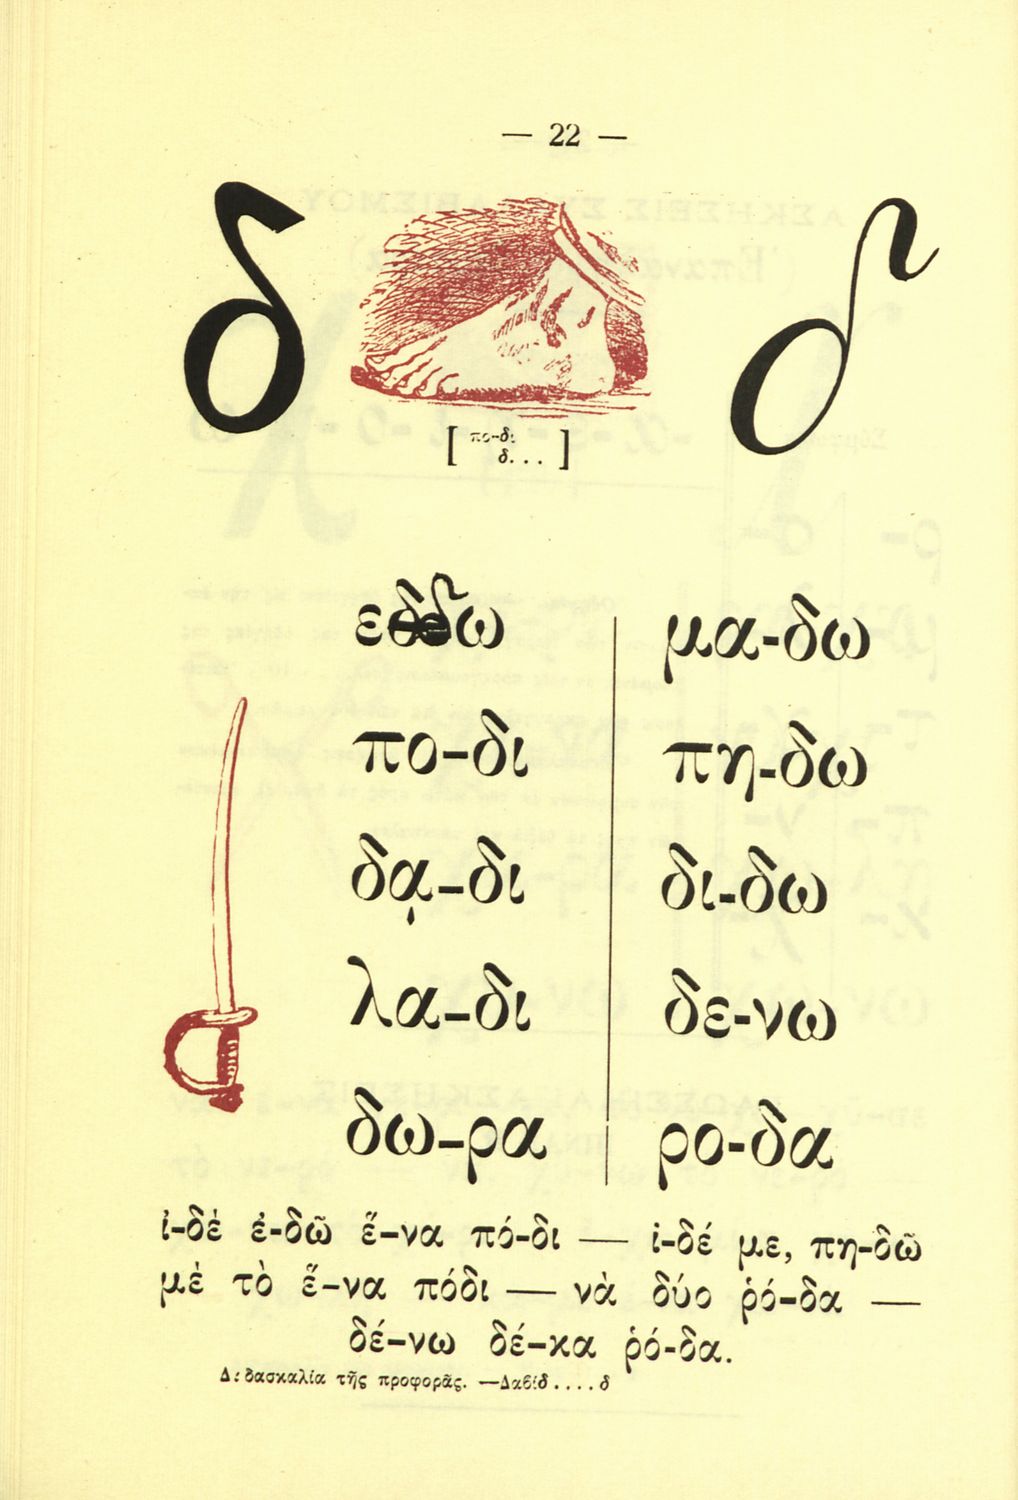 — 22 —
δ δ
[ πο-δι
δ... ]
εδδω
πο-δι
δα-δι
λα-δι
δω-ρα
μα-δω
πη-δω
δι-δω
δε-νω
ρο-δα
ἰ-δὲ ἐ-δῶ ἕ-να πό-δι — ἰ-δέ με, πη-δῶ
μὲ τὸ ἕ-να πόδι — νὰ δύο ῥό-δα —
δέ-νω δέ-κα ῥό-δα.
Διδασκαλία τῆς προφορᾶς. —Δαβίδ....δ